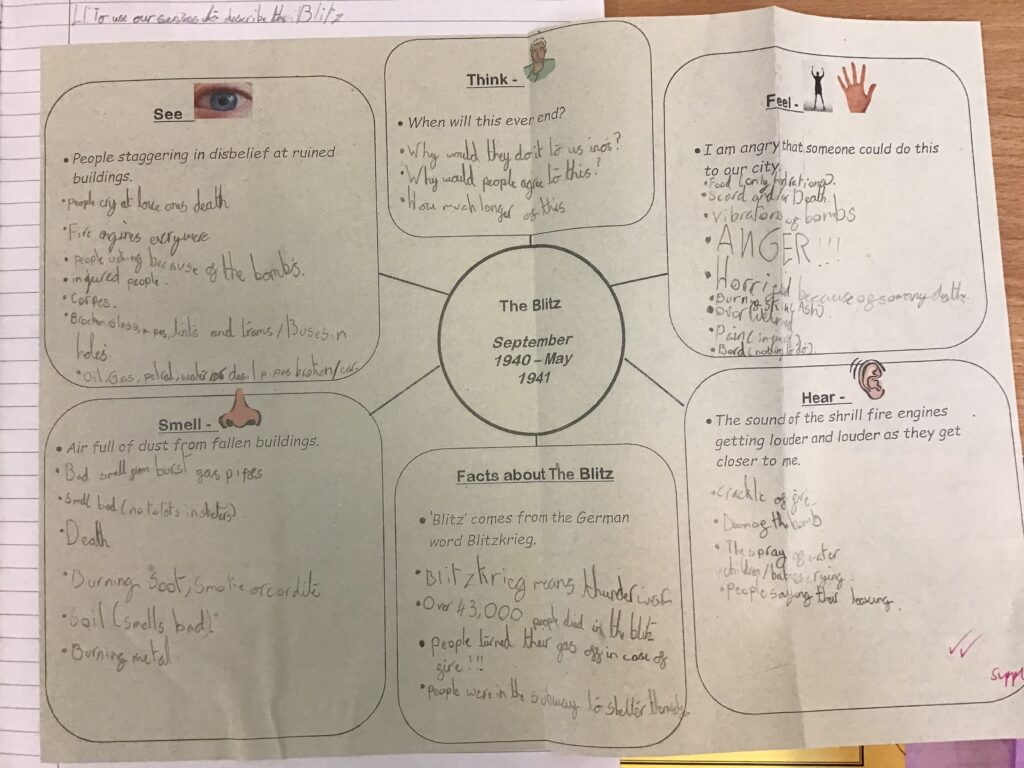 LI To use our senses to describe the Blitz
See
• People staggering in disbelief at ruined
buildings.
• people cry at love ones death
• Fire engines everywere
• people because of the bombs.
• injured people.
• Corpes.
• glass, pipes, and trams/Buses in
holes.
• Oil, Gas, petral, water pipes broken/
Think -
• When will this ever end?
• Why would they do it to us
• Why would people agree to this?
• How much longer of this
Feel -
• I am angry that someone could do this
to our city
• Food (only rations).
• Death.
• Vibrations of bombs
• ANGER!!!
• because of so many deaths.
• Burning Ash)
•
• Pain
• Bord
The Blitz
September
1940 – May
1941
Smell -
• Air full of dust from fallen buildings.
• Bad smell from burst gas pipes
• Smell bad (no toilets in shelters)
• Death
• Burning Soot, Smoke or cordite
• Soil (smells bad)
• Burning metal
Facts about The Blitz
• 'Blitz' comes from the German
word Blitzkrieg.
• Blitzkrieg means thunder
• Over 43,000 people died in the blitz
• People turned their gas off in case of
fire!!!
• people were in the subway to shelter
Hear -
• The sound of the shrill fire engines
getting louder and louder as they get
closer to me.
• crackle of fire
• bomb
• The spray of water
children/babies crying
• People saying their
Suppl